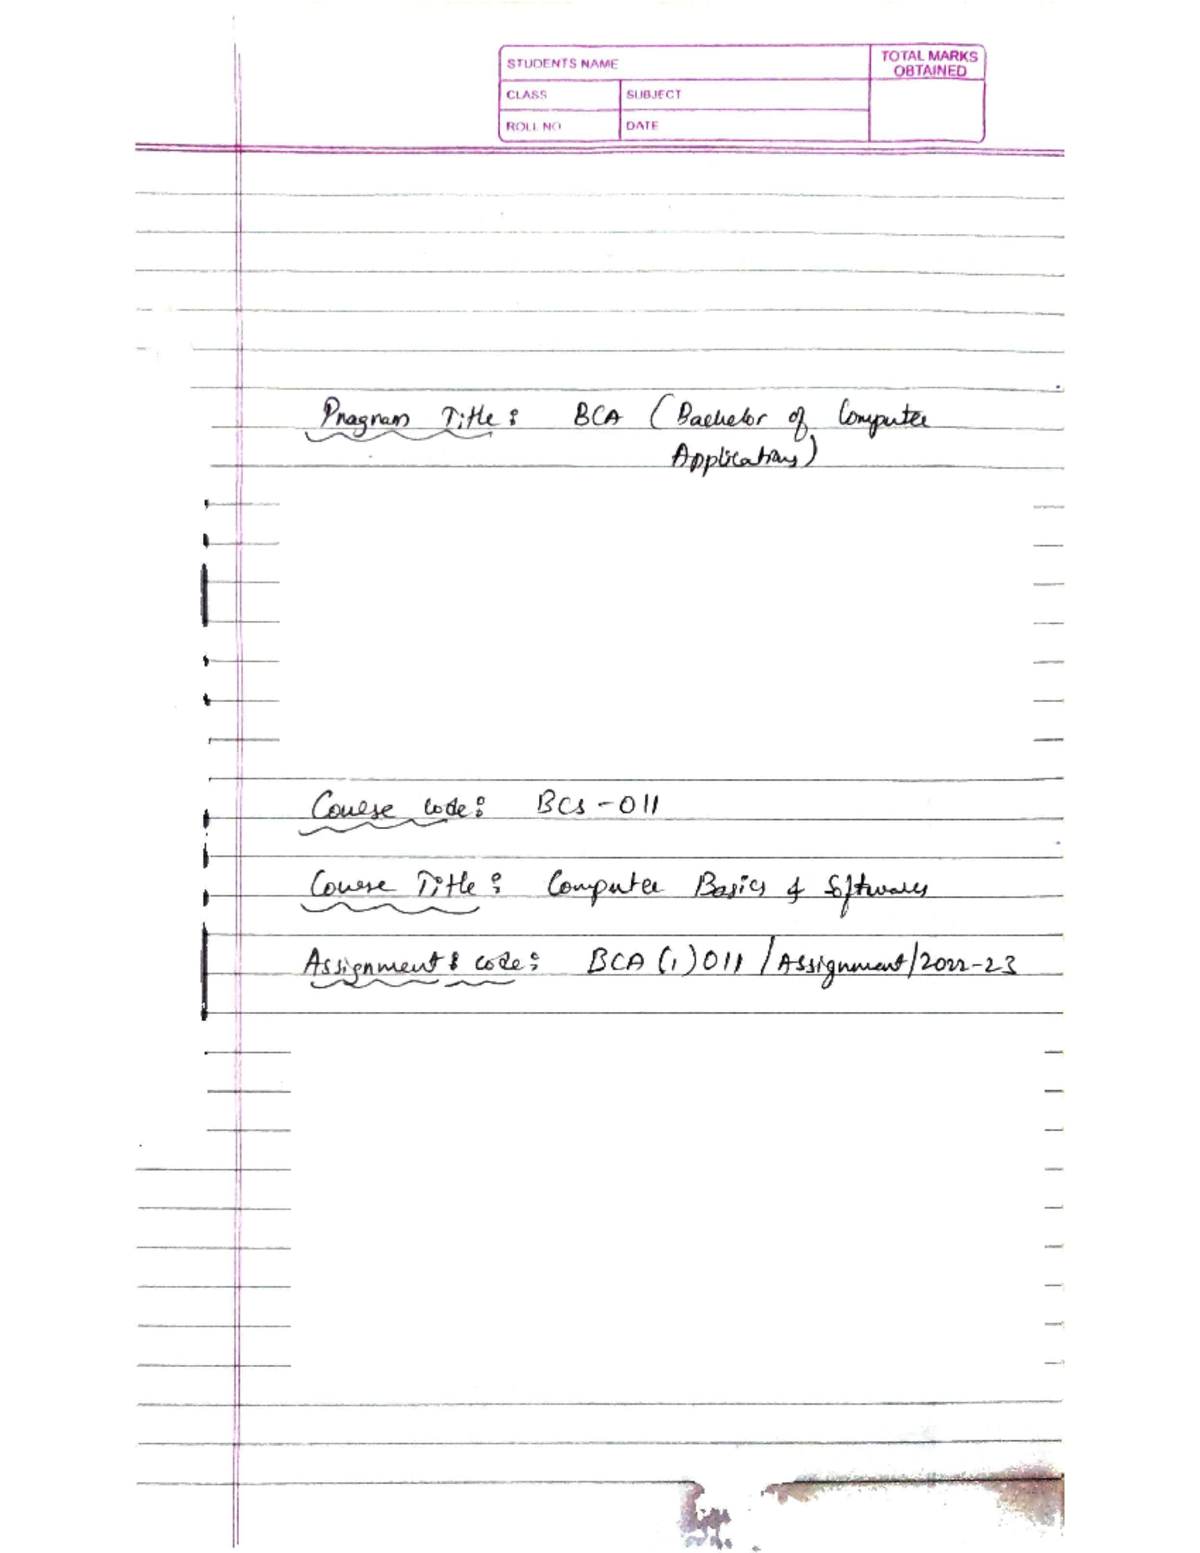 STUDENTS NAME
TOTAL MARKS
OBTAINED
CLASS
SUBJECT
ROLL NO
DATE
Program Title : BCA (Bachelor of Computer
Applications)
Course Code : BCS-011
Course Title : Computer Basics & Softwares
Assignment code : BCA (1)011 / Assignment/2022-23